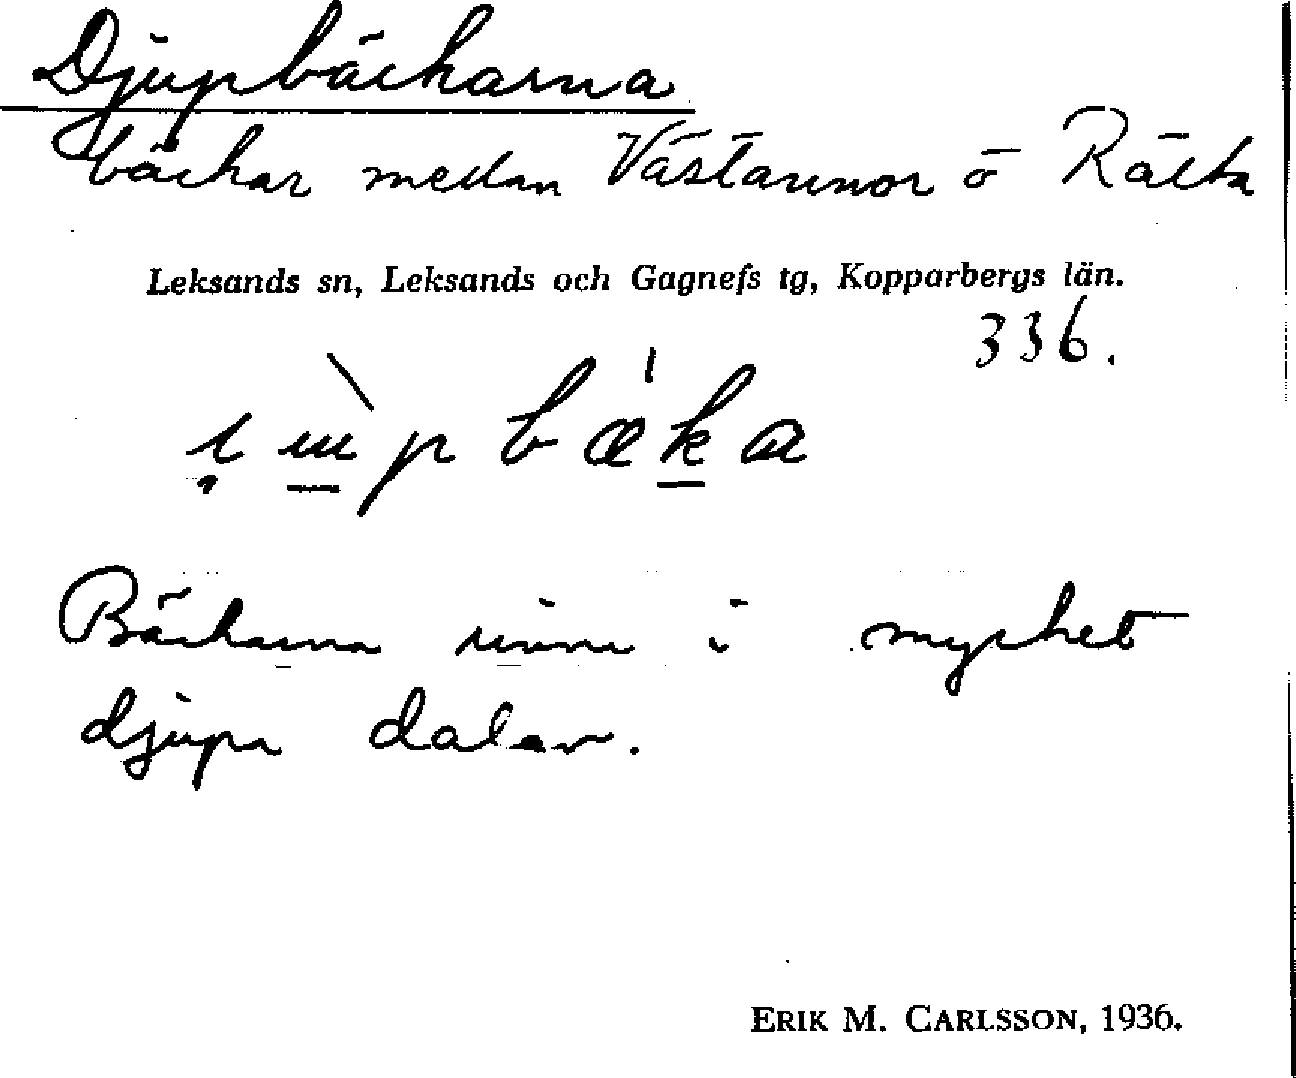 Djupbäckarna
bäckar medan Västannor o Rälta
Leksands sn, Leksands och Gagnefs tg, Kopparbergs län.
336.
Bäckarna rinna i mycket
djupa dalar.
ERIK M. CARLSSON, 1936.